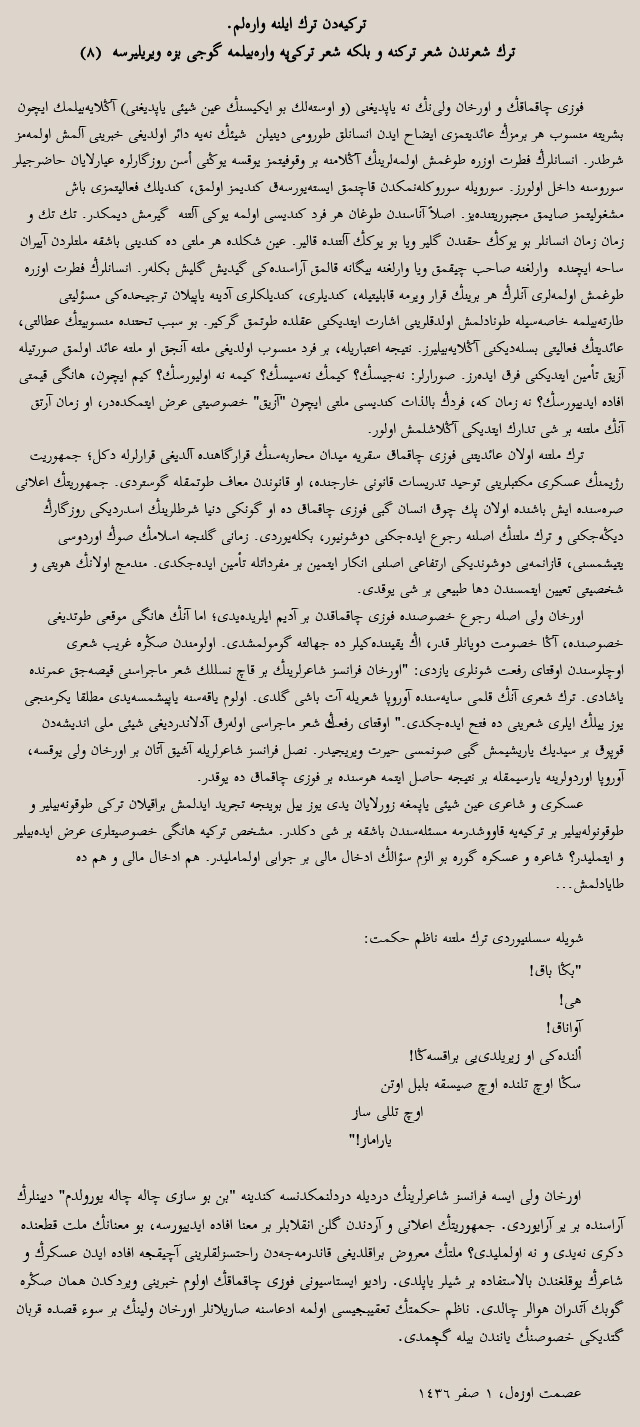 تركیه‌دن ترك ایلنه واره‌لم.
ترك شعرندن شعر تركنه و بلكه شعر تركی‌یه واره‌بیلمه گوجی بزه ویریلیرسه (٨)
فوزی چاقماقڭ و اورخان ولی‌نڭ نه یاپدیغنی (و اوسته‌لك بو ایكیسنڭ عین شیئی یاپدیغنی) آڭلایه‌بیلمك ایچون
بشریته منسوب هر برمزڭ عائدیتمزی ایضاح ایدن انسانلق طورومی دینیلن شیئڭ نه‌یه دائر اولدیغی خبرینی آلمش اولمه‌مز
شرطدر. انسانلرڭ فطرت اوزره طوغمش اولمه‌لرینڭ آڭلامنه بر وقوفیتمز یوقسه یوڭنی أسن روزگارلره عیارلایان حاضرجیلر
سوروسنه داخل اولورز. سورویله سوروكله‌نمكدن قاچنمق ایسته‌یورسه‌ق كندیمز اولمق، كندیلك فعالیتمزی باش
مشغولیتمز صایمق مجبوریتنده‌یز. اصلاً آناسندن طوغان هر فرد كندیسی اولمه یوكی آلتنه گیرمش دیمكدر. تك تك و
زمان زمان انسانلر بو یوكڭ حقندن گلیر ویا بو یوكڭ آلتنده قالیر. عین شكلده هر ملتی ده كندینی باشقه ملتلردن آییران
ساحه ایچنده وارلغنه صاحب چیقمق ویا وارلغنه بیگانه قالمق آراسنده‌كی گیدیش گلیش بكله‌ر. انسانلرڭ فطرت اوزره
طوغمش اولمه‌لری آنلرڭ هر برینڭ قرار ویرمه قابلیتیله، كندیلری، كندیلكلری آدینه یاپیلان ترجیحده‌كی مسؤلیتی
طارته‌بیلمه خاصه‌سیله طونادلمش اولدقلرینی اشارت ایتدیكنی عقلده طوتمق گركیر. بو سبب تحتنده منسوبیتڭ عطالتی،
عائدیتڭ فعالیتی بسله‌دیكنی آڭلایه‌بیلیرز. نتیجه اعتباریله، بر فرد منسوب اولدیغی ملته آنجق او ملته عائد اولمق صورتیله
آزیق تأمین ایتدیكنی فرق ایده‌رز. صورارلر: نه‌جیسڭ؟ كیمڭ نه‌سیسڭ؟ كیمه نه اولیورسڭ؟ كیم ایچون، هانگی قیمتی
افاده ایدییورسڭ؟ نه زمان كه، فردڭ بالذات كندیسی ملتی ایچون "آزیق" خصوصیتی عرض ایتمكده‌در، او زمان آرتق
آنڭ ملتنه بر شی تدارك ایتدیكی آڭلاشلمش اولور.
ترك ملتنه اولان عائدیتنی فوزی چاقماق سقریه میدان محاربه‌سنڭ قرارگاهنده آلدیغی قرارلرله دكل؛ جمهوریت
رژیمنڭ عسكری مكتبلرینی توحید تدریسات قانونی خارجنده، او قانوندن معاف طوتمقله گوستردی. جمهوریتڭ اعلانی
صره‌سنده ایش باشنده اولان پك چوق انسان گبی فوزی چاقماق ده او گونكی دنیا شرطلرینڭ اسدردیكی روزگارڭ
دیڭه‌جكنی و ترك ملتنڭ اصلنه رجوع ایده‌جكنی دوشونیور، بكله‌یوردی. زمانی گلنجه اسلامڭ صوڭ اوردوسی
یتیشمسنی، قازانمه‌یی دوشوندیكی ارتفاعی اصلنی انكار ایتمین بر مفرداتله تأمین ایده‌جكدی. مندمج اولانڭ هویتی و
شخصیتی تعیین ایتمسندن دها طبیعی بر شی یوقدی.
اورخان ولی اصله رجوع خصوصنده فوزی چاقماقدن بر آدیم ایلریده‌یدی؛ اما آنڭ هانگی موقعی طوتدیغی
خصوصنده، آڭا خصومت دویانلر قدر، اڭ یقیننده‌كیلر ده جهالته گومولمشدی. اولومندن صڭره غریب شعری
اوچلوسندن اوقتای رفعت شونلری یازدی: "اورخان فرانسز شاعرلرینڭ بر قاچ نسللك شعر ماجراسنی قیصه‌جق عمرنده
یاشادی. ترك شعری آنڭ قلمی سایه‌سنده آوروپا شعریله آت باشی گلدی. اولوم یاقه‌سنه یاپیشمسه‌یدی مطلقا یكرمنجی
یوز ییلڭ ایلری شعرینی ده فتح ایده‌جكدی." اوقتای رفعڭ شعر ماجراسی اوله‌رق آدلاندردیغی شیئی ملی اندیشه‌دن
قوپوق بر سیدیك یاریشیمش گبی صونمسی حیرت ویریجیدر. نصل فرانسز شاعرلریله آشیق آتان بر اورخان ولی یوقسه،
آوروپا اوردولرینه یارسیمقله بر نتیجه حاصل ایتمه هوسنده بر فوزی چاقماق ده یوقدر.
عسكری و شاعری عین شیئی یاپمغه زورلایان یدی یوز ییل بوینجه تجرید ایدلمش براقیلان تركی طوقونه‌بیلیر و
طوقونوله‌بیلیر بر تركیه‌یه قاووشدرمه مسئله‌سندن باشقه بر شی دكلدر. مشخص تركیه هانگی خصوصیتلری عرض ایده‌بیلیر
و ایتملیدر؟ شاعره و عسكره گوره بو الزم سؤالڭ ادخال مالی بر جوابی اولماملیدر. هم ادخال مالی و هم ده
طایادلمش...
شویله سسلنیوردی ترك ملتنه ناظم حكمت:
"بڭا باق!
هی!
آواناق!
ألنده‌كی او زیریلدی‌یی براقسه‌ڭا!
سڭا اوچ تلنده اوچ صیسقه بلبل اوتن
اوچ تللی ساز
یاراماز!"
اورخان ولی ایسه فرانسز شاعرلرینڭ دردیله دردلنمكدنسه كندینه "بن بو سازی چاله چاله یورولدم" دیینلرڭ
آراسنده بر یر آرایوردی. جمهوریتڭ اعلانی و آردندن گلن انقلابلر بر معنا افاده ایدییورسه، بو معنانڭ ملت قطعنده
دكری نه‌یدی و نه اولملیدی؟ ملتڭ معروض براقلدیغی قاندرمه‌جه‌دن راحتسزلقلرینی آچیقجه افاده ایدن عسكرڭ و
شاعرڭ یوقلغندن بالاستفاده بر شیلر یاپلدی. رادیو ایستاسیونی فوزی چاقماقڭ اولوم خبرینی ویردكدن همان صڭره
گوبك آتدران هوالر چالدی. ناظم حكمتڭ تعقیبجیسی اولمه ادعاسنه صاریلانلر اورخان ولینڭ بر سوء قصده قربان
گتدیكی خصوصنڭ یانندن بیله گچمدی.
عصمت اوزه‌ل، ١ صفر ١٤٣٦